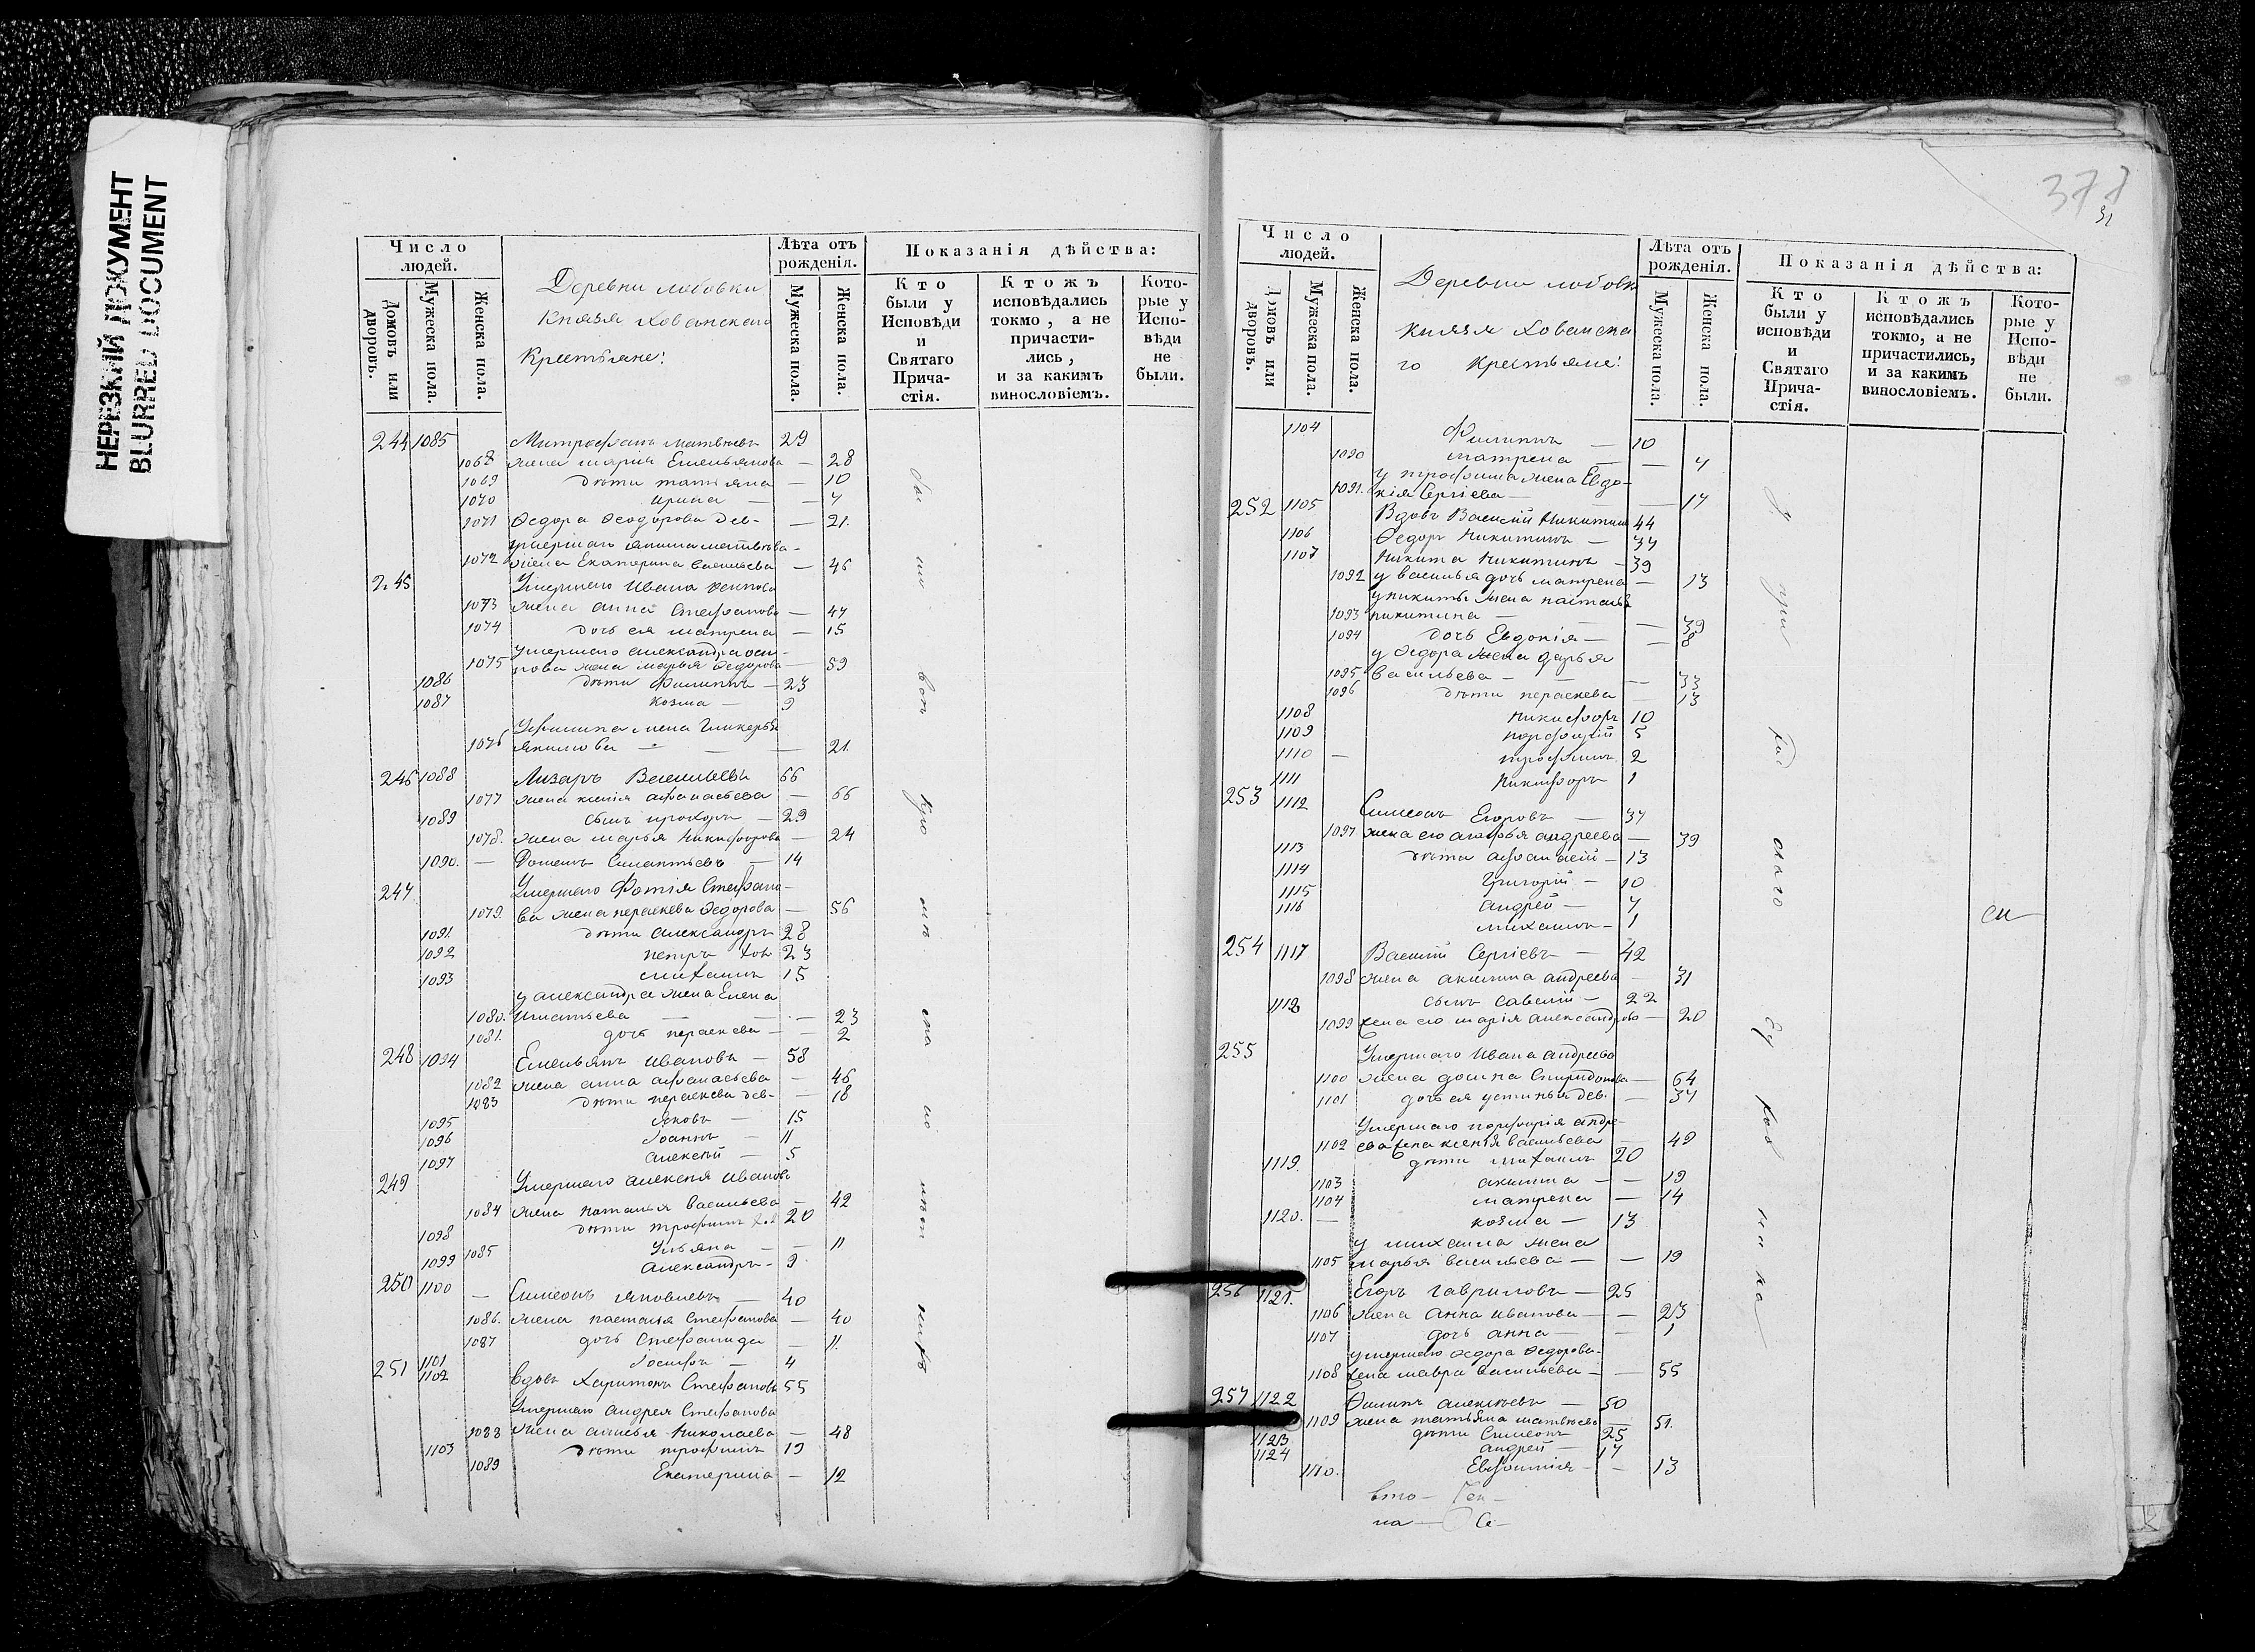 НЕРЕЗКИЙ ДОКУМЕНТ
BLURRED DOCUMENT
Число людей.
Домовъ или дворовъ.
Мужеска пола.
Женска пола.
Деревни
Князя Хованскаго
Крестьяне:
Лѣта отъ рожденія.
Мужеска пола.
Женска пола.
Показанія дѣйства:
Кто были у Исповѣди и Святаго Прича-стія.
Ктожъ исповѣдались токмо, а не причасти-лись, и за какимъ винословіемъ.
Кото-рые у Испо-вѣди не были.
244 1085 Митрофанъ Матвѣевъ 29
1068 жена Марія Емельянова — 28
1069 дѣти Татіяна — 10
1070 Ирина — 7
1071 Ѳедора Ѳеодорова дев- — 21.
умершаго Якима Матвѣева-
1072 жена Екатерина Васильева — 46
245 Умершаго Ивана
1073 жена Анна Стефанова — 47
1074 дочь ея Матрена — 15
умершаго Александра Оси-
1075 пова жена Марья Ѳедорова — 59
1086 дѣти Филиппъ — 23
1087 Козма — 9
жена Гликерья
1076 Якимова — 21.
246 1088 Лизаръ Васильевъ 66
1077 жена Ксенія Афанасьева — 66
1089 сынъ Прохоръ — 29
1078. жена Марья Никифорова — 24
1090. — 14
247 Умершаго Фотія Стефано-
1079. ва жена Параскева Ѳедорова — 56
1091. дѣти Александръ 28
1092 Петръ хол 23
1093 Михаилъ 15
у Александра жена Елена
1080. Игнатьева — 23
1081. дочь Параскева — 2
248 1094 Емельянъ Ивановъ — 58
1082 жена Анна Афанасьева — 46
1083 дѣти Параскева дев- — 18
1095 Яковъ — 15
1096 Іоаннъ — 11
1097 Алексѣй — 5
249 Умершаго Алексѣя Иванова
1084 жена Наталья Васильева — 42
1098 дѣти Трофимъ хол 20
1085 Ульяна — 11
1099 Александръ — 9
250 1100 — Симеонъ Яковлевъ — 40
1086. жена Настасія Стефанова — 40
1087 дочь Стефанида — 11.
1101 Іосифъ — 4
251 1102 вдовъ Харитонъ Стефановъ 55
Умершаго Андрея Стефанова
1088 жена Николаева — 48
1103 дѣти Трофимъ 19
1089 Екатерина — 12
377
Число людей.
Домовъ или дворовъ.
Мужеска пола.
Женска пола.
Деревни
Князя Хованска
го Крестьяне:
Лѣта отъ рожденія.
Мужеска пола.
Женска пола.
Показанія дѣйства:
Кто были у исповѣди и Святаго Прича-стія.
Ктожъ исповѣдались токмо, а не причастились, и за какимъ винословіемъ.
Кото-рые у Испо-вѣди не были.
1104 Филиппъ — 10
1090 Матрена — 7
у Трофима жена Евдо-
1091. кія Сергіева — 17
252 1105 Вдовъ Василій Никитинъ 44
1106 Ѳедоръ Никитинъ — 37
1107 Никита Никитинъ — 39
1092 у Василья дочь Матрена — 13
у Никиты жена Настасья
1093 Никитина — 39
1094 дочь Евдокія — 8
у Ѳедора жена Дарья
1095 Васильева — 33
1096 дѣти Параскева — 13
1108 Никифоръ 10
1109 Порфирій 5
1110 — Трофимъ 2
1111 Никифоръ 1
253 1112 Симеонъ Егоровъ — 37
1097 жена его Агафья Андреева — 39
1113 дѣти Афанасій — 13
1114 Григорій — 10
1115 Андрей — 7
1116 Михаилъ — 1
254 1117 Василій Сергіевъ — 42
1098 жена Акилина Андреева — 31
1118 сынъ Савелій — 22
1099 жена его Марія Александрова — 20
255 Умершаго Ивана Андреева
1100 жена Домна Спиридонова — 64
1101 дочь ея Устинья дев. — 37
Умершаго Порфирія Андре-
1102 ева жена Ксенія Васильева — 49
1119. дѣти Михаилъ 20
1103 Акилина — 19
1104 Матрена — 14
1120. — Козма — 13
у Михаила жена
1105 Марья Васильева — 19
256 1121. Егоръ Гавриловъ — 25
1106 жена Анна Иванова — 23
1107 дочь Анна — 1
умершаго Ѳедора Ѳедорова-
1108 жена Мавра Васильева — 55
257 1122 Филипъ Алексѣевъ — 50
1109 жена Татьяна Матвѣева — 51.
1123 дѣти Симеонъ 25
1124 Андрей — 17
1110. Евфимія — 13